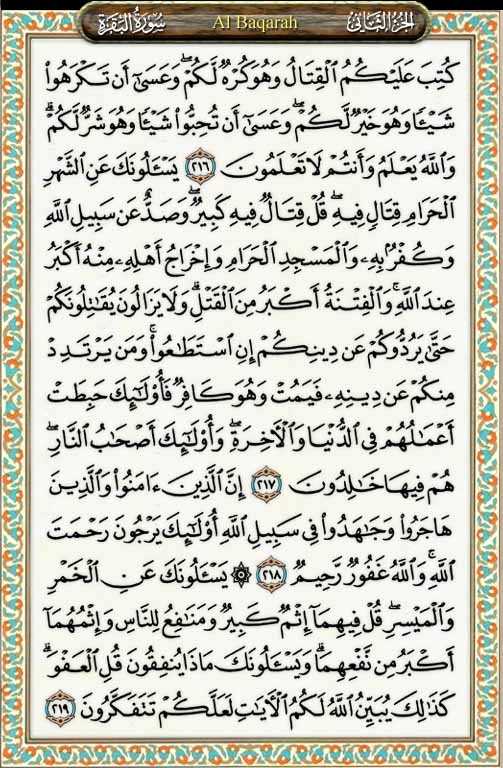 سُورَةُ البَقَرَةِ Al Baqarah الجُزءُ الثَّانِي
كُتِبَ عَلَيْكُمُ ٱلْقِتَالُ وَهُوَ كُرْهٌ لَّكُمْ ۖ وَعَسَىٰٓ أَن تَكْرَهُوا۟
شَيْـًٔا وَهُوَ خَيْرٌ لَّكُمْ ۖ وَعَسَىٰٓ أَن تُحِبُّوا۟ شَيْـًٔا وَهُوَ شَرٌّ لَّكُمْ ۗ
وَٱللَّهُ يَعْلَمُ وَأَنتُمْ لَا تَعْلَمُونَ ٢١٦ يَسْـَٔلُونَكَ عَنِ ٱلشَّهْرِ
ٱلْحَرَامِ قِتَالٍ فِيهِ ۖ قُلْ قِتَالٌ فِيهِ كَبِيرٌ ۖ وَصَدٌّ عَن سَبِيلِ ٱللَّهِ
وَكُفْرٌۢ بِهِۦ وَٱلْمَسْجِدِ ٱلْحَرَامِ وَإِخْرَاجُ أَهْلِهِۦ مِنْهُ أَكْبَرُ
عِندَ ٱللَّهِ ۚ وَٱلْفِتْنَةُ أَكْبَرُ مِنَ ٱلْقَتْلِ ۗ وَلَا يَزَالُونَ يُقَـٰتِلُونَكُمْ
حَتَّىٰ يَرُدُّوكُمْ عَن دِينِكُمْ إِنِ ٱسْتَطَـٰعُوا۟ ۚ وَمَن يَرْتَدِدْ
مِنكُمْ عَن دِينِهِۦ فَيَمُتْ وَهُوَ كَافِرٌ فَأُو۟لَـٰٓئِكَ حَبِطَتْ
أَعْمَـٰلُهُمْ فِى ٱلدُّنْيَا وَٱلْـَٔاخِرَةِ ۖ وَأُو۟لَـٰٓئِكَ أَصْحَـٰبُ ٱلنَّارِ ۖ
هُمْ فِيهَا خَـٰلِدُونَ ٢١٧ إِنَّ ٱلَّذِينَ ءَامَنُوا۟ وَٱلَّذِينَ
هَاجَرُوا۟ وَجَـٰهَدُوا۟ فِى سَبِيلِ ٱللَّهِ أُو۟لَـٰٓئِكَ يَرْجُونَ رَحْمَتَ
ٱللَّهِ ۚ وَٱللَّهُ غَفُورٌ رَّحِيمٌ ٢١٨ ۞ يَسْـَٔلُونَكَ عَنِ ٱلْخَمْرِ
وَٱلْمَيْسِرِ ۖ قُلْ فِيهِمَآ إِثْمٌ كَبِيرٌ وَمَنَـٰفِعُ لِلنَّاسِ وَإِثْمُهُمَآ
أَكْبَرُ مِن نَّفْعِهِمَا ۗ وَيَسْـَٔلُونَكَ مَاذَا يُنفِقُونَ قُلِ ٱلْعَفْوَ ۗ
كَذَٰلِكَ يُبَيِّنُ ٱللَّهُ لَكُمُ ٱلْـَٔايَـٰتِ لَعَلَّكُمْ تَتَفَكَّرُونَ ٢١٩